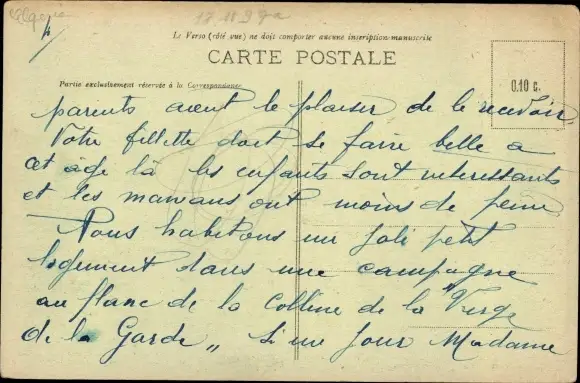 Algerie
Le Verso (côté vue) ne doit comporter aucune inscription manuscrite
CARTE POSTALE
Partie exclusivement réservée à la Correspondance
0.10 c.
parents aient le plaisir de le recevoir
Votre fillette doit se faire belle a
cet age là les enfants sont interessants
et les mamans ont moins de peine
Nous habitons un joli petit
logement dans une campagne
au flanc de la Colline de la "Vierge
de la Garde „ Si un jour Madame